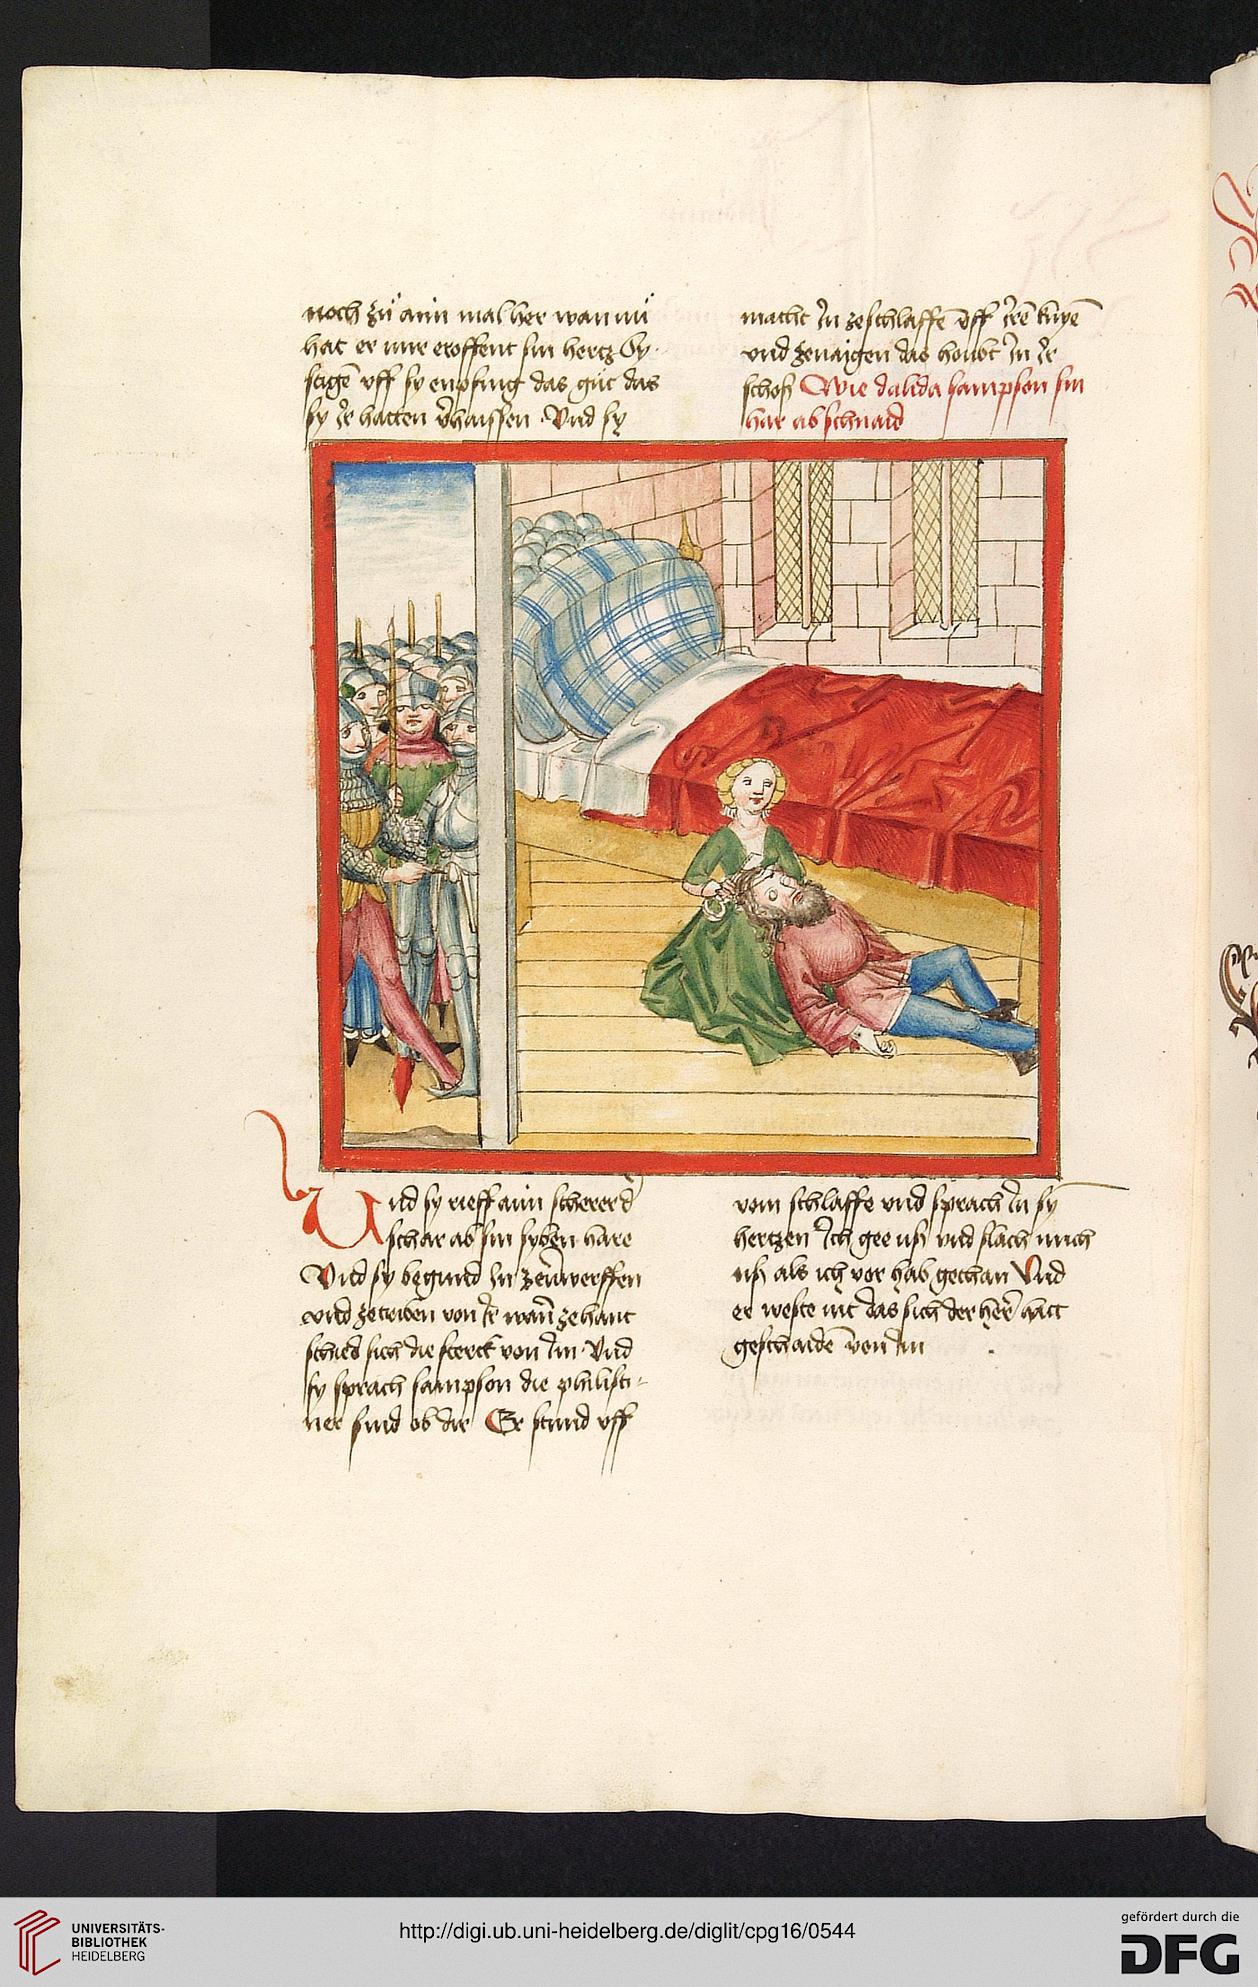 noch zů ainⁿ mal her wann nů
hat er mir eroffent sin hertz Sy
stigē vff sy enpfing das gůt das
sy Ir hatten v̄haissen · Vnd sy
macht In zeschlaffē vff Irē knyē
vnd zenaigen das houbt In Ir
schoß Wie dalida sampson sin
har ab schnaid
Vnd sy rieff ainⁿ scherer d̄
schar ab sin syben hare
Vnd sy begund In
vnd zetriben von Ir wann̄ zehant
schied sich die sterck von Im · Vnd
sy sprach sampson die philisti-
ner sind ob dir Er stund vff
vom schlaffe vnd sprach In sy̅
hertzen Ich gee uß vnd slach mich
uß als ich vor hab gethan Vnd
er weste nit das sich der herr hatt
geschaidē von Im
UNIVERSITÄTS-
BIBLIOTHEK
HEIDELBERG
http://digi.ub.uni-heidelberg.de/diglit/cpg16/0544
gefördert durch die
DFG